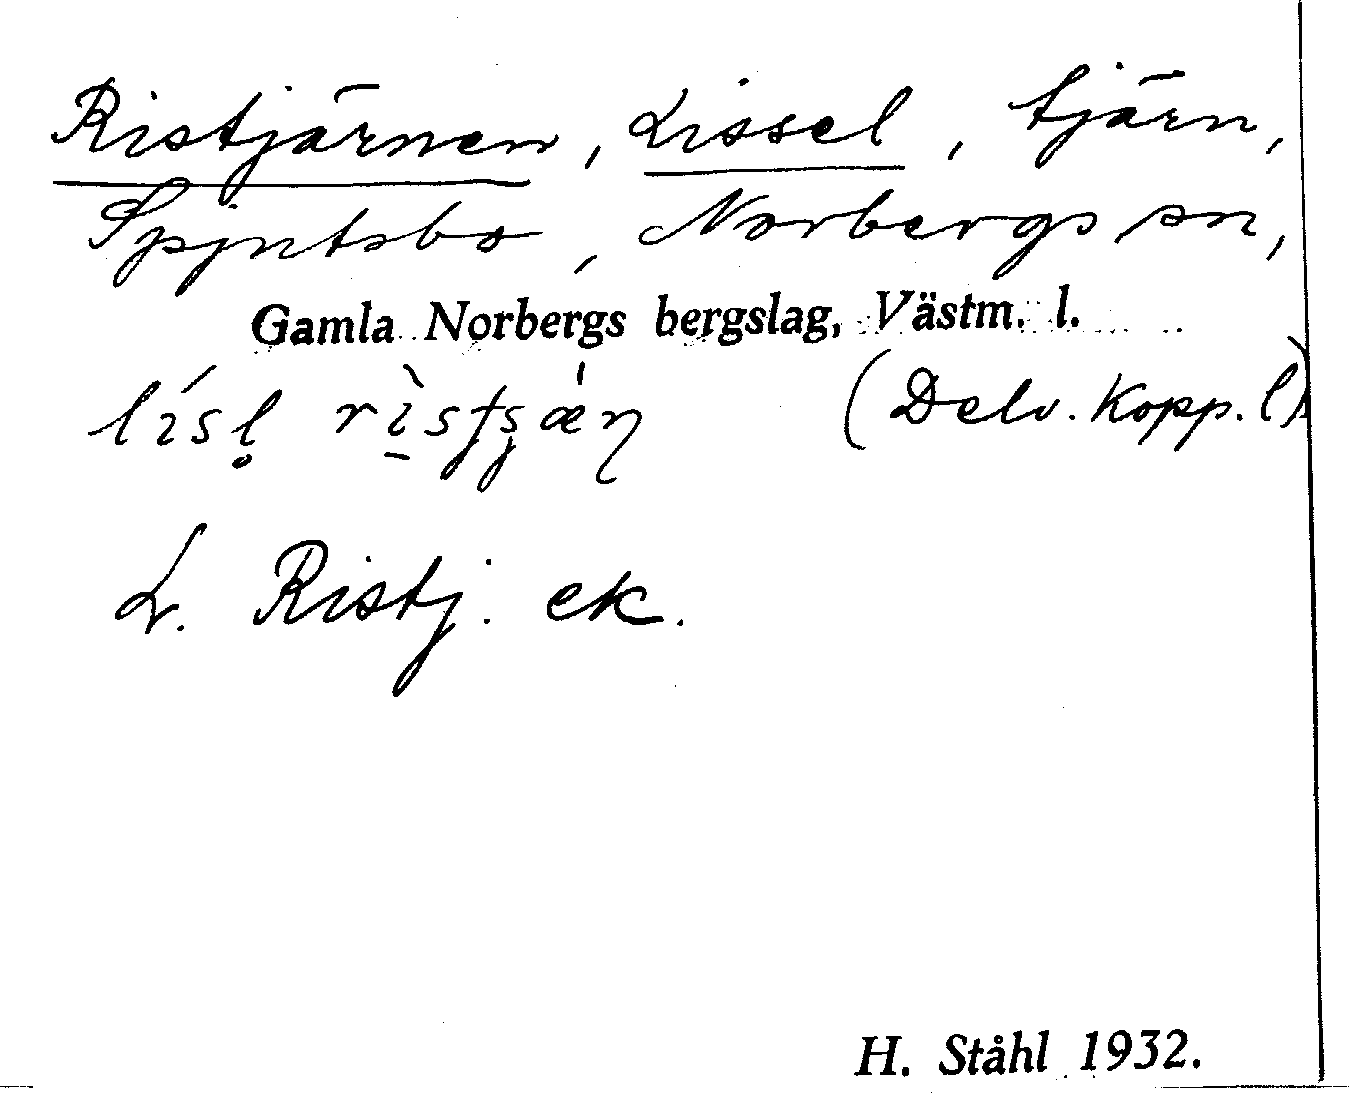 Ristjärnen, Lissel, tjärn,
Spjutsbo, Norbergs sn,
Gamla Norbergs bergslag, Västm. l.
(Delv. Kopp. l)
L. Ristj. ek.
H. Ståhl 1932.